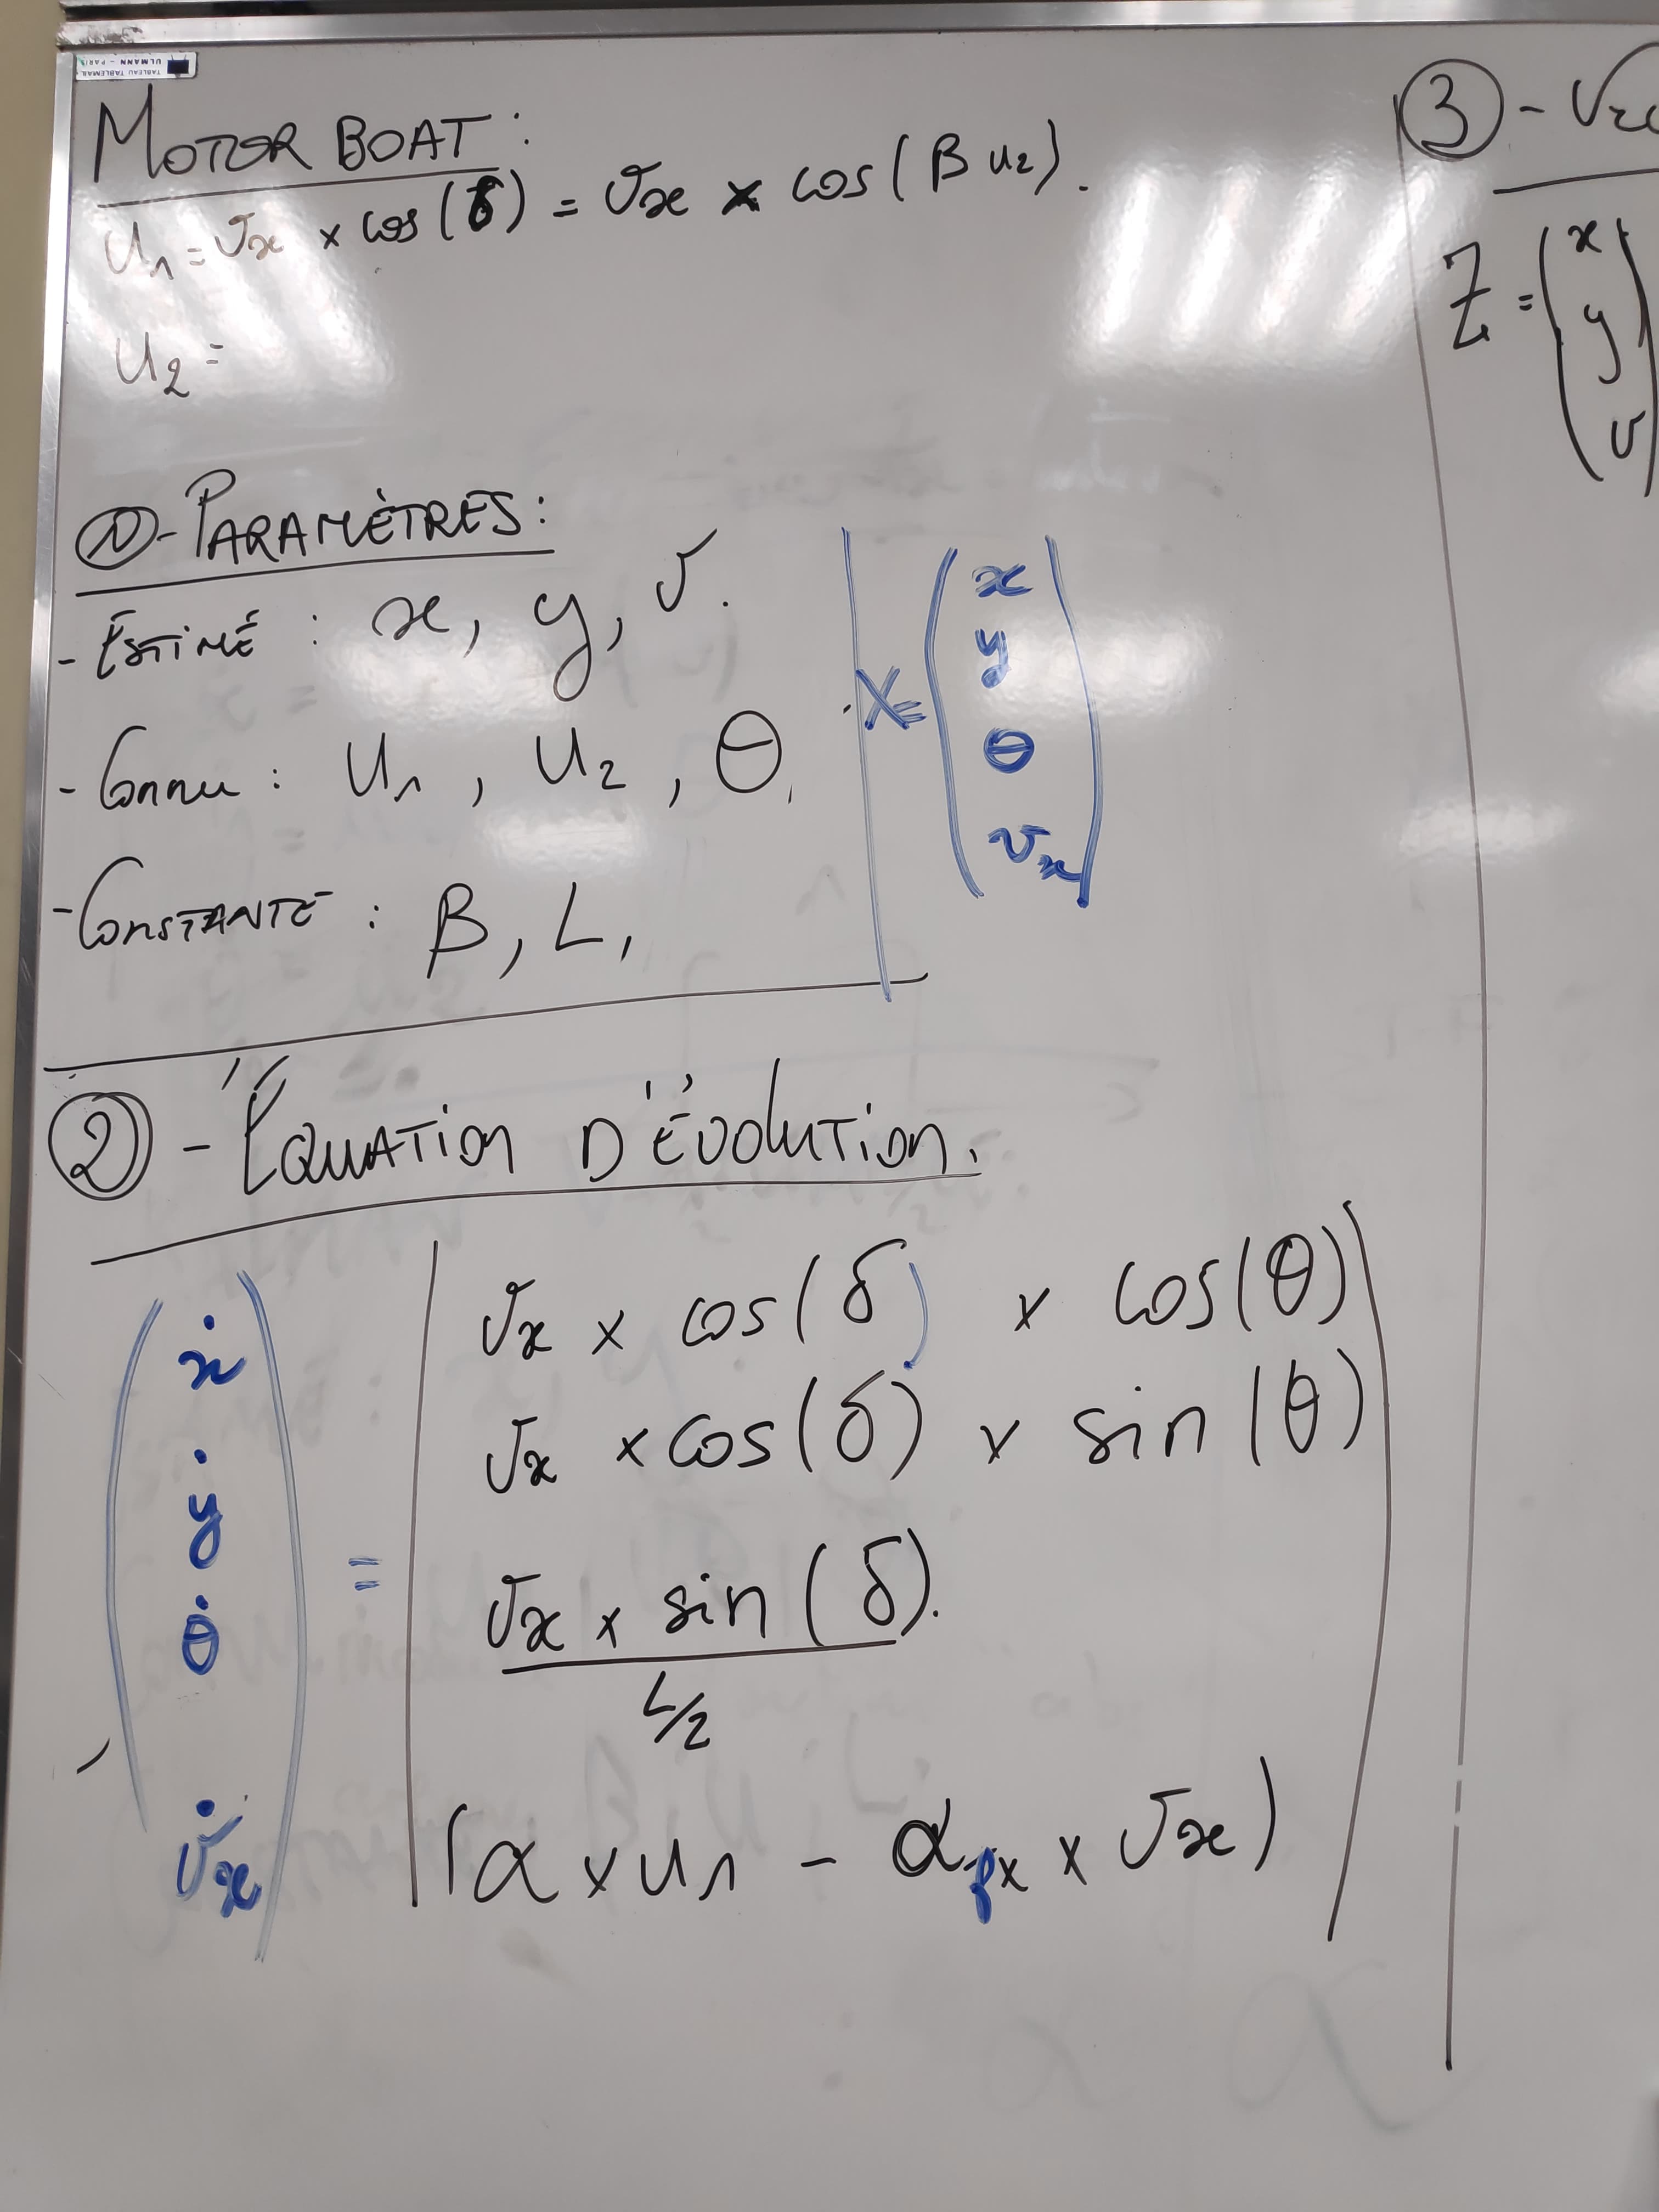 ULMANN - PARIS
TABLEAU TABLEMAIL
MOTOR BOAT :
u₁ = vx × cos(δ) = vx × cos(β u₂).
u₂ =
① - PARAMÈTRES :
- ESTIMÉ : x, y, v.
- Connu : u₁, u₂, θ,
- CONSTANTE : β, L,
X = (x
y
θ
vx)
② - ÉQUATION D'ÉVOLUTION.
(ẋ
ẏ
θ̇
v̇x) =
vx × cos(δ) × cos(θ)
vx × cos(δ) × sin(θ)
vx × sin(δ).
L/2
(α × u₁ - αfx × vx)
③ -
Z = (x
y
v)